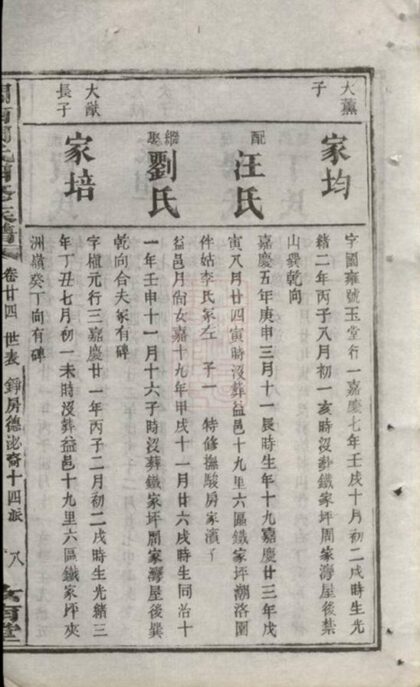 大薰
子
家均
字國雍號玉堂行一嘉慶七年壬戌十月初二戌時生光
緒二年丙子八月初一亥時沒葬鐵家坪周家灣屋後紮
山巽乾向
配
汪氏
嘉慶五年庚申三月十一辰時生年十九嘉慶廿三年戊
寅八月廿四寅時沒葬益邑十九里六區鐵家坪潮洛園
伴姑李氏冢左 子一 特修撫駿房家濱子
繼
娶
劉氏
益邑月尚女嘉十九年甲戌十一月廿六戌時生同治十
一年壬申十一月十六子時沒葬鐵家坪周家灣屋後巽
乾向合夫冢有碑
大猷
長子
家培
字植元行三嘉慶廿一年丙子二月初二戌時生光緒三
年丁丑七月初一未時沒葬益邑十九里六區鐵家坪夾
洲嶺癸丁向有碑
卷廿四 世表 錚房德泌裔十四派 八